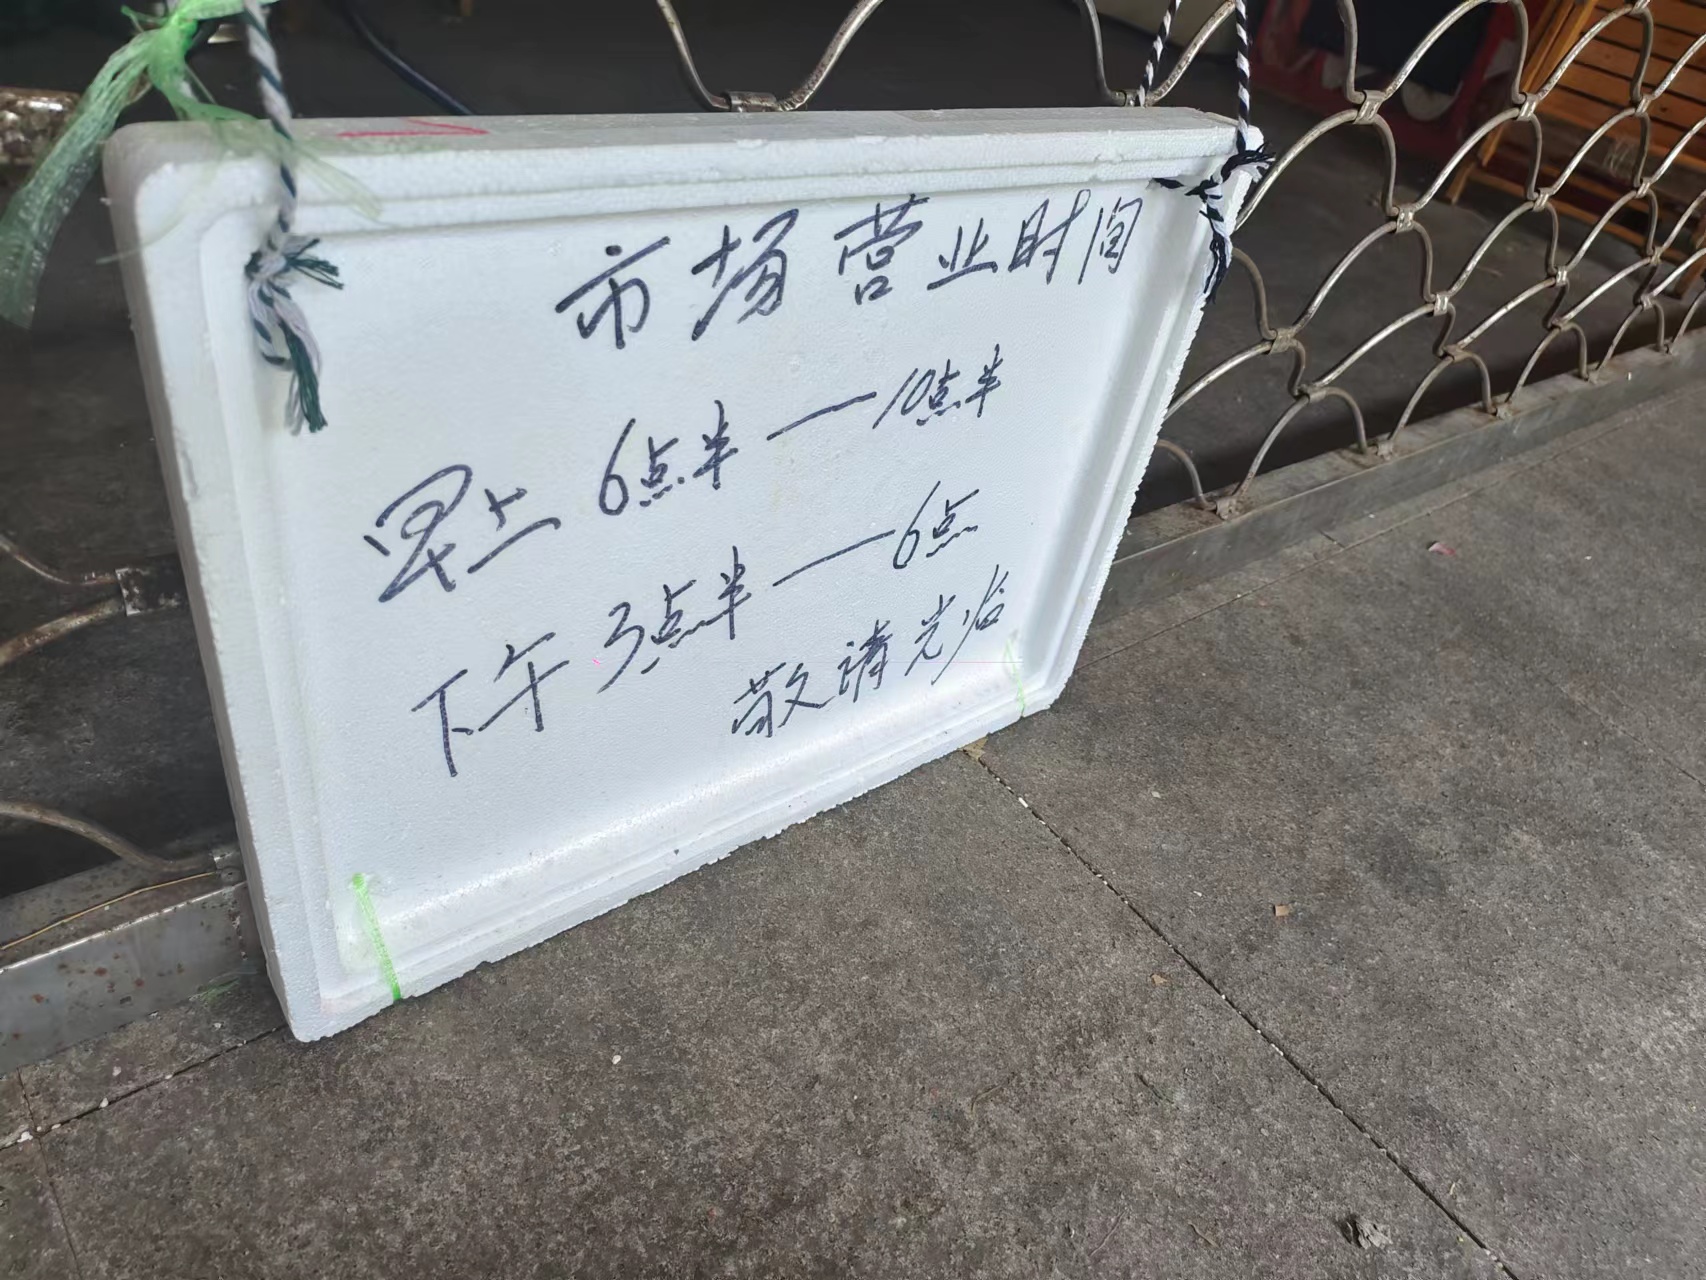 市场营业时间
早上 6点半—10点半
下午 3点半—6点
敬请光临